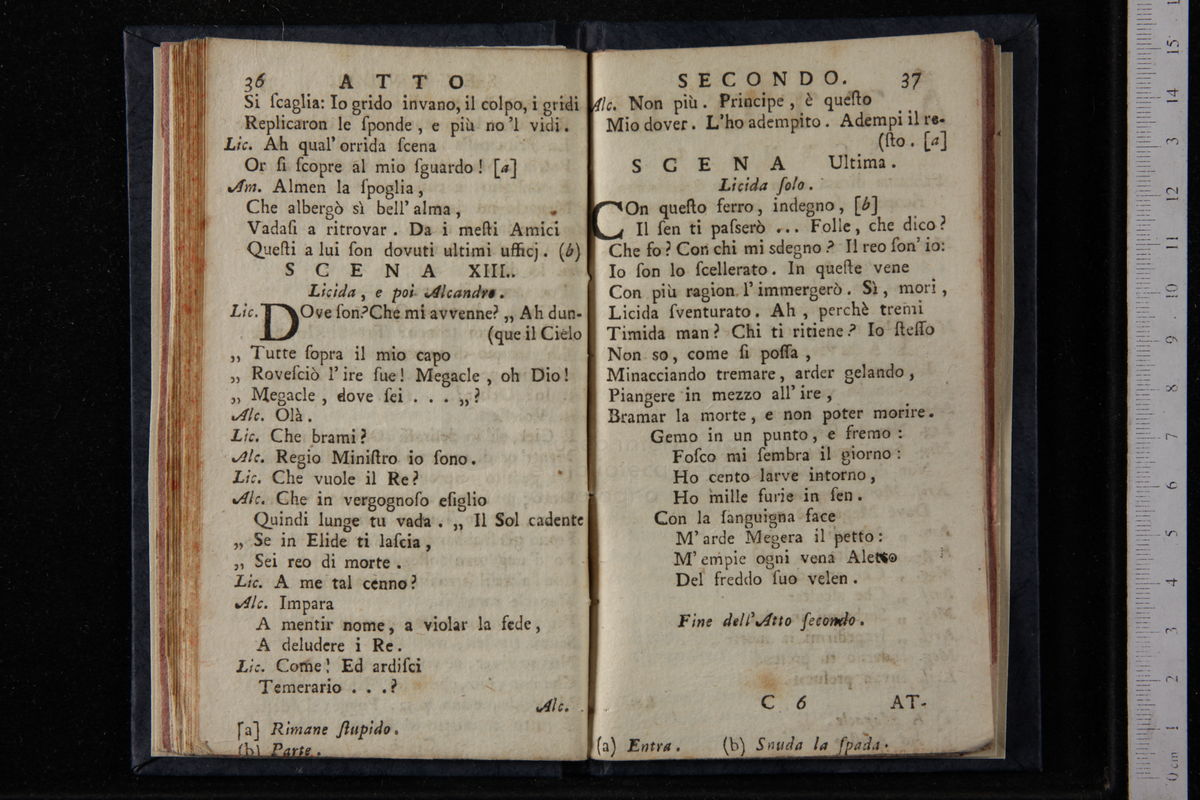 36 ATTO
Si ſcaglia: Io grido invano, il colpo, i gridi
Replicaron le ſponde, e più no'l vidi.
Lic. Ah qual' orrida ſcena
Or ſi ſcopre al mio ſguardo! [a]
Am. Almen la ſpoglia,
Che albergò sì bell' alma,
Vadaſi a ritrovar. Da i meſti Amici
Queſti a lui ſon dovuti ultimi ufficj. (b)
SCENA XIII.
Licida, e poi Alcandro.
Lic. DOve ſon? Che mi avvenne? „ Ah dun-
(que il Cielo
„ Tutte ſopra il mio capo
„ Roveſciò l' ire ſue! Megacle, oh Dio!
„ Megacle, dove ſei . . . „?
Alc. Olà.
Lic. Che brami?
Alc. Regio Miniſtro io ſono.
Lic. Che vuole il Re?
Alc. Che in vergognoſo eſiglio
Quindi lunge tu vada. „ Il Sol cadente
„ Se in Elide ti laſcia,
„ Sei reo di morte.
Lic. A me tal cenno?
Alc. Impara
A mentir nome, a violar la fede,
A deludere i Re.
Lic. Come! Ed ardiſci
Temerario . . .?
Alc.
[a] Rimane ſtupido.
(b) Parte.
SECONDO. 37
Alc. Non più. Principe, è queſto
Mio dover. L'ho adempito. Adempi il re-
(ſto. [a]
SCENA Ultima.
Licida ſolo.
COn queſto ferro, indegno, [b]
Il ſen ti paſserò ... Folle, che dico?
Che fo? Con chi mi sdegno? Il reo ſon' io:
Io ſon lo ſcellerato. In queſte vene
Con più ragion l' immergerò. Sì, mori,
Licida ſventurato. Ah, perchè tremi
Timida man? Chi ti ritiene? Io ſteſſo
Non so, come ſi poſſa,
Minacciando tremare, arder gelando,
Piangere in mezzo all' ire,
Bramar la morte, e non poter morire.
Gemo in un punto, e fremo:
Foſco mi ſembra il giorno:
Ho cento larve intorno,
Ho mille furie in ſen.
Con la ſanguigna face
M' arde Megera il petto:
M' empie ogni vena Aletto
Del freddo ſuo velen.
Fine dell' Atto ſecondo.
C 6 AT-
(a) Entra. (b) Snuda la ſpada.
0 cm 1 2 3 4 5 6 7 8 9 10 11 12 13 14 15